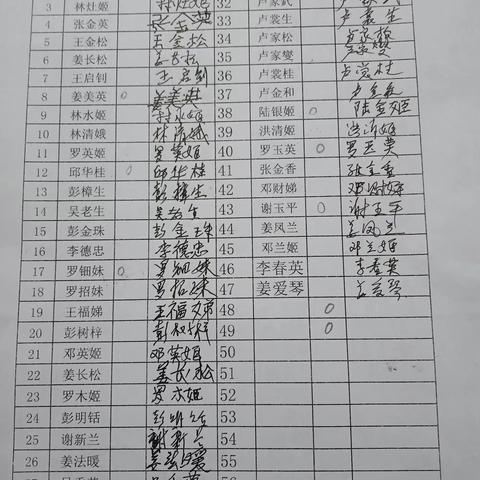 3 林灶姬 林灶姬 32 卢家武
4 张金英 张金英 33 卢裳生 卢裳生
5 王金松 王金松 34 卢家松
6 姜长松 姜长松 35 卢家燮
7 王启钊 王启钊 36 卢裳桂 卢裳桂
8 姜美英 姜美英 37 卢金和
9 林水姬 林水姬 38 陆银姬 陆金姬
10 林清娥 林清娥 39 洪清姬 洪沂姬
11 罗英姬 罗英姬 40 罗玉英 罗玉英
12 邱华桂 邱华桂 41 张金香 张金香
13 彭樟生 彭樟生 42 邓财娣 邓财娣
14 吴老生 吴老生 43 谢玉平 谢玉平
15 彭金珠 彭金珠 44 姜凤兰
16 李德忠 李德忠 45 邓兰姬 邓兰姬
17 罗钿妹 罗钿妹 46 李春英 李春英
18 罗招妹 罗招妹 47 姜爱琴 姜爱琴
19 王福娣 王福娣 48
20 彭树梓 彭树梓 49
21 邓英姬 邓英姬 50
22 姜长松 姜长松 51
23 罗木姬 罗木姬 52
24 彭明铦 53
25 谢新兰 谢新兰 54
26 姜法暖 姜法暖 55